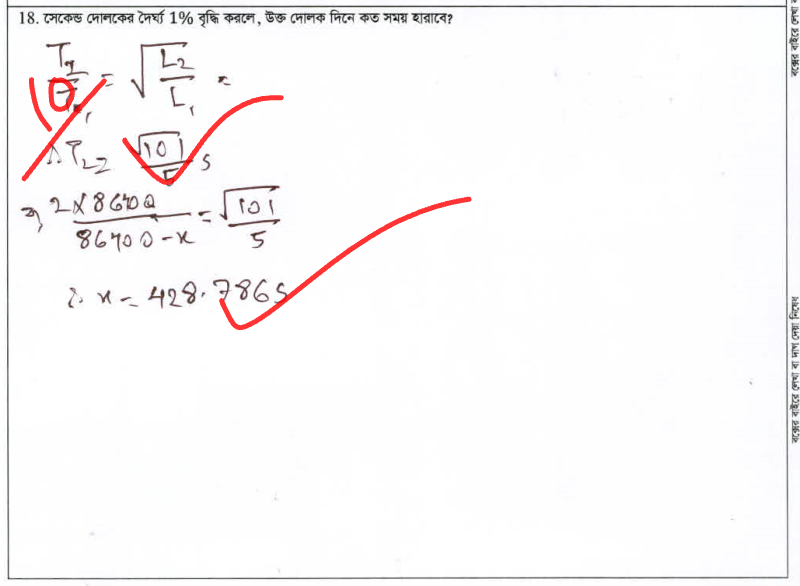 18. সেকেন্ড দোলকের দৈর্ঘ্য 1% বৃদ্ধি করলে, উক্ত দোলক দিনে কত সময় হারাবে?
= √(L2/L1) =
T2 = √101/5 s
⇒, 2×86400/86400-x = √101/5
∴ x = 428.786s
বক্সের বাইরে লেখা বা দাগ দেয়া নিষেধ